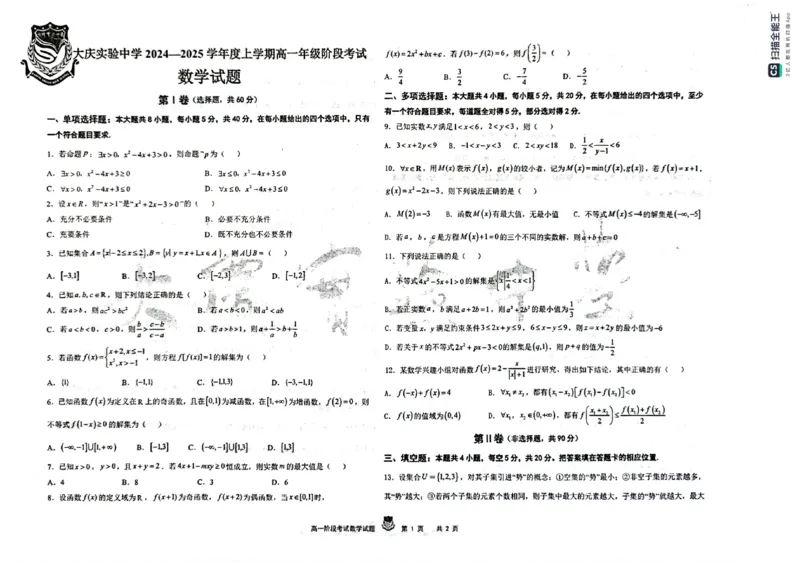 大庆实验中学 2024—2025 学年度上学期高一年级阶段考试
数学试题
第Ⅰ卷（选择题，共 60 分）
一、单项选择题：本大题共 8 小题，每小题 5 分，共 40 分，在每小题给出的四个选项中，只有
一个符合题目要求.
1．若命题 P：∃x>0，x²-4x+3>0，则命题¬p 为（　）
A．∃x>0，x²-4x+3≥0　B．∃x≤0，x²-4x+3≤0
C．∀x>0，x²-4x+3≤0　D．∀x≤0，x²-4x+3≤0
2．设 x∈R，则“x>1”是“x²+2x-3>0”的（　）
A．充分不必要条件　B．必要不充分条件
C．充要条件　D．既不充分也不必要条件
3．已知集合 A={x|-2≤x≤2}，B={y|y=x+1,x∈A}，则 A∪B=（　）
A．[-3,1]　B．[-3,2]　C．[-2,3]　D．[-1,2]
4．已知 a,b,c∈R，则下列结论正确的是（　）
A．若 a>b，则 ac²>bc²　B．若 a<b<0，则 a²<ab
C．若 a<b<0，c>0，则 b/a > (c-b)/(c-a)　D．若 a>b>1，则 a+1/a > b+1/b
5．若函数 f(x)={x+2,x≤-1 x²,x>-1，则方程 f[f(x)]=1 的解集为（　）
A．{1}　B．{-1,1}　C．{-1,1,3}　D．{-3,-1,1}
6．已知函数 f(x) 为定义在 R 上的奇函数，且在[0,1)为减函数，在[1,+∞)为增函数，f(2)=0，则
不等式 f(1-x)≥0 的解集为（　）
A．(-∞,-1]∪[1,+∞)　B．[-1,3]　C．(-∞,-1]∪[1,3]　D．[1,3]
7．已知 x>0，y>0，且 x+y=2．若 4x+1-mxy≥0 恒成立，则实数 m 的最大值是（　）
A．4　B．8　C．3　D．6
8．设函数 f(x) 的定义域为 R，f(x+1) 为奇函数，f(x+2) 为偶函数，当 x∈[0,1]时，
f(x)=2x²+bx+c．若 f(3)-f(2)=6，则 f(3/2)=（　）
A．9/4　B．3/2　C．-7/4　D．-5/2
二、多项选择题：本大题共 4 小题，每小题 5 分，共 20 分，在每小题给出的四个选项中，至少
有一个符合题目要求，每道题全对得 5 分，部分选对得 2 分.
9．已知实数 x,y 满足 1<x<6，2<y<3，则（　）
A．3<x+2y<9　B．-1<x-y<3　C．2<xy<18　D．1/2<x/(y-1)<6
10．∀x∈R，用 M(x) 表示 f(x)，g(x) 的较小者，记为 M(x)=min{f(x),g(x)}，若 f(x)=x+1，
g(x)=x²-2x-3，则下列说法正确的是（　）
A．M(2)=-3　B．函数 M(x) 有最大值，无最小值　C．不等式 M(x)≤-4 的解集是(-∞,-5]
D．若 a，b，c 是方程 M(x)+1=0 的三个不同的实数解，则 a+b+c=0
11．下列说法正确的是（　）
A．不等式 4x²-5x+1>0 的解集是{x|1/4<x<1}
B．若正实数 a，b 满足 a+2b=1，则 a²+2b² 的最小值为 1/3
C．若变量 x，y 满足约束条件 3≤2x+y≤9，6≤x-y≤9，则 z=x+2y 的最小值为-6
D．若关于 x 的不等式 2x²+px-3<0 的解集是(q,1)，则 p+q 的值为-1/2
12．某数学兴趣小组对函数 f(x)=2-x/(|x|+1) 进行研究，得出如下结论，其中正确的有（　）
A．f(-x)+f(x)=4　B．∀x₁≠x₂，都有(x₁-x₂)[f(x₁)-f(x₂)]<0
C．f(x) 的值域为(0,4)　D．∀x₁，x₂∈(0,+∞)，都有 f((x₁+x₂)/2)≤(f(x₁)+f(x₂))/2
第Ⅱ卷（非选择题，共 90 分）
三、填空题：本题共 4 小题，每空 5 分，共 20 分．把答案填在答题卡的相应位置.
13．设集合 U={1,2,3}，对其子集引进“势”的概念：①空集的“势”最小；②非空子集的元素越多，
其“势”越大；③若两个子集的元素个数相同，则子集中最大的元素越大，子集的“势”就越大，最大
高一阶段考试数学试题　第 1 页　共 2 页
CS 扫描全能王
3亿人都在用的扫描App